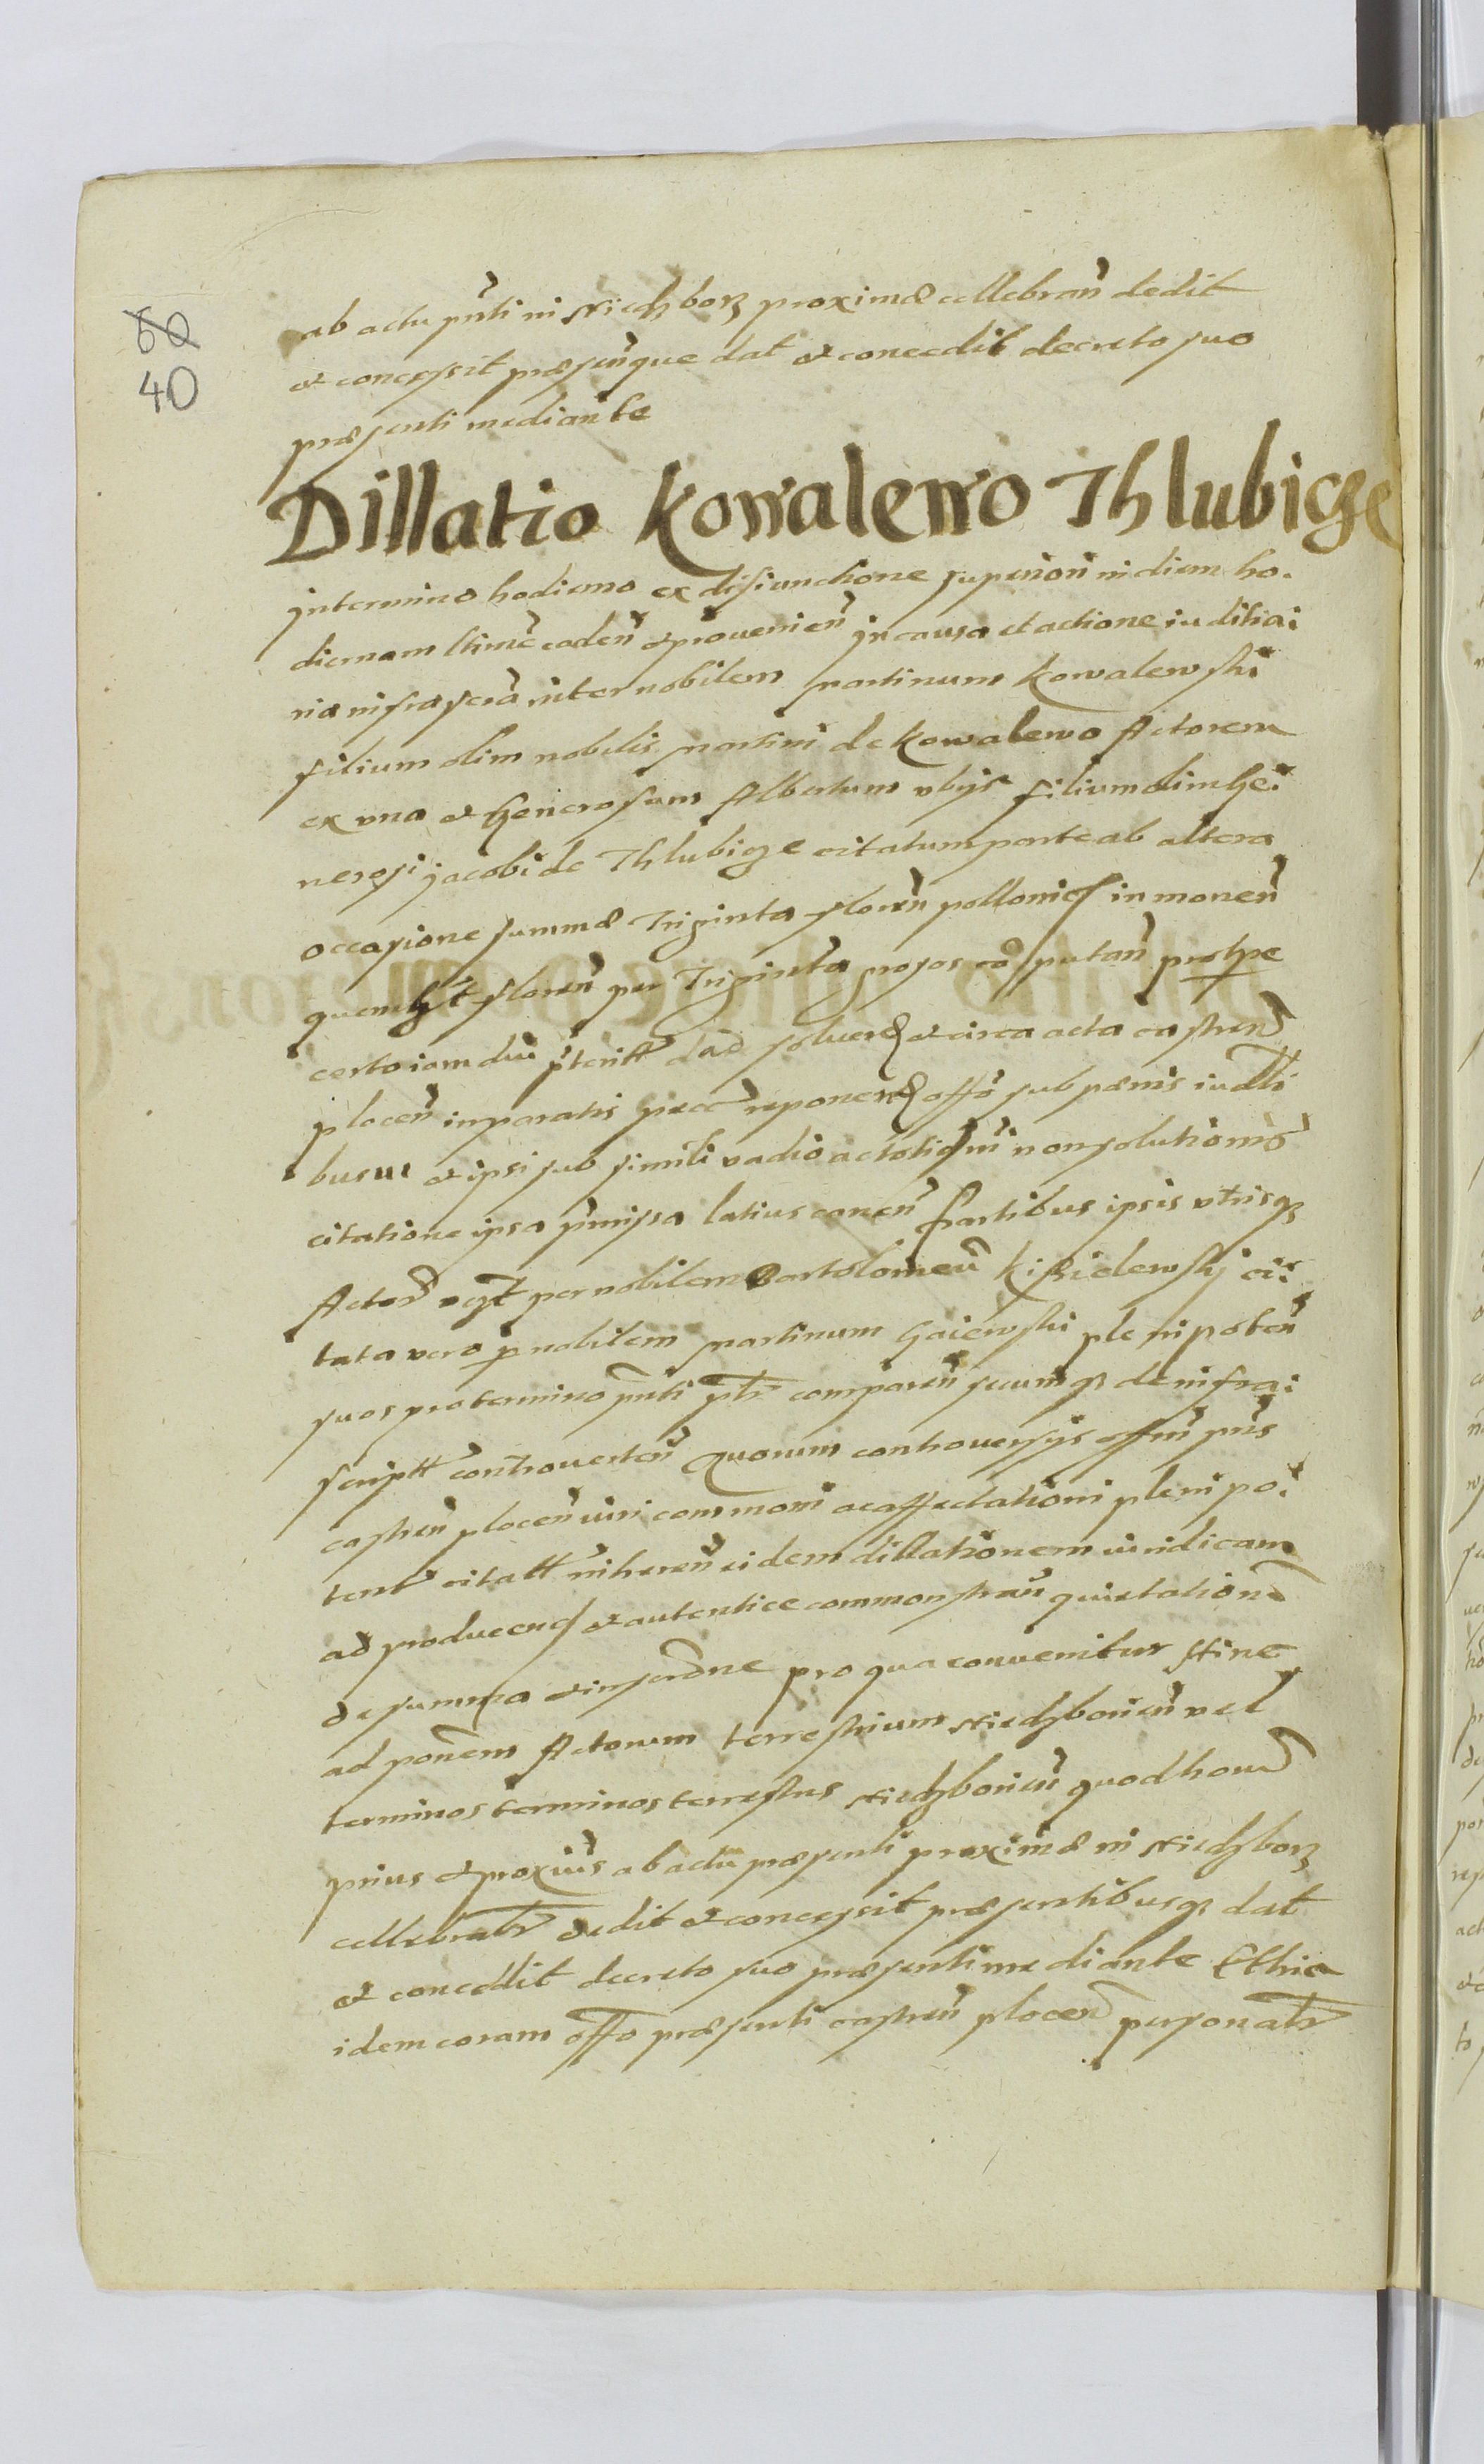 60
40
ab actu pñti in Niedzborz proximæ cellebrañ dedit
et concessit præsenñque dat et concedit decreto suo
præsenti mediante
Dillatio Kowalewo Thlubicze
Intermino hodierno ex disiunctione superiori in diem ho.
diernam ltime caden̄ et provenien̄ in causa et actione iuditia:
ria infrascr̄a inter nobilem Martinum Kowalewski
filium olim nobilis Martini de Kowalewo Actorem
ex una et Generosum Albertum filium olim Ge:
nerosi Jacobi de Thlubicze citatum parte ab altera
occasione summæ Triginta floren̄ pollonic in moneñ
quemlt floreñ per Triginta grosos coputañ
certo iam diu pterit solvend et circa acta castreñ
ploceñ in paratis pecc reponend offo sub pænis iudli
busue et ipsi sub simili vadio non solutionis
citatione ipsa pmissa latius conteñ Partibus ipsis utrisqz
Actor per nobilem Bartolomeū Kisielewsky ci:
tata vero p nobilem Martinum Gaiewski plenipoteñ
suos pro termino pñti ptr compareñ secumqz de infra:
script controverteñ Quorum controversijs offm pñs
castreñ ploceñ ac affectationi plenipo:
tent citatt inhereñ eidem dillationem iuridicam
ad producend et autentice commonstrañ quietatione
de summa et inscrone pro qua convenitur
ad Actorum terrestrium Niedzborieñ vel
terminos terminos terrestres Niedzborieñ quod horū
prius et proxius ab actu præsenti proximæ in Niedzborz
cellebratr dedit et concessit præsentibusqz dat
et concedit decreto suo præsenti mediante
idem coram offo præsenti castreñ ploceñ personatr